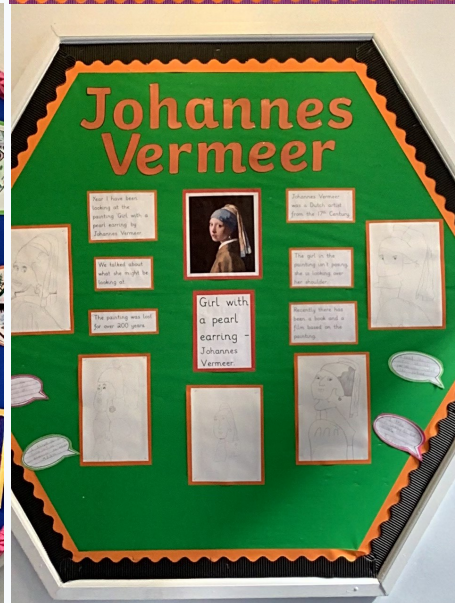 Johannes
Vermeer
Year 1 have been
looking at the
painting Girl with a
pearl earring by
Johannes Vermeer.
We talked about
what she might be
looking at.
The painting was lost
for over 200 years.
Girl with
a pearl
earring -
Johannes
Vermeer.
Johannes Vermeer
was a Dutch artist
from the 17th Century.
The girl in the
painting isn't posing,
she is looking over
her shoulder.
Recently there has
been a book and a
film based on the
painting.